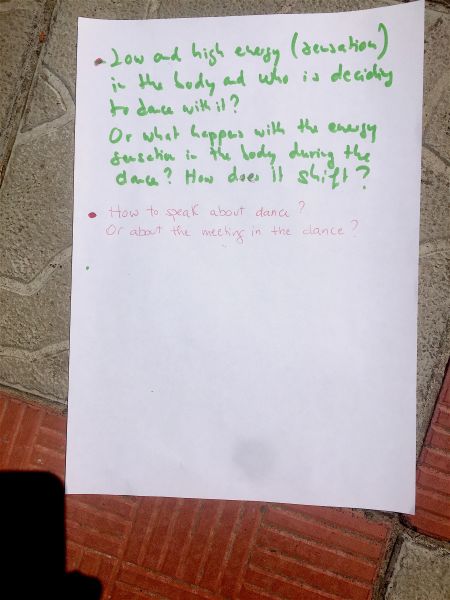 • Low and high energy (sensation)
in the body and who is deciding
to dance with it?
Or what happens with the energy
sensation in the body during the
dance? How does it shift?
• How to speak about dance?
Or about the meeting in the dance?